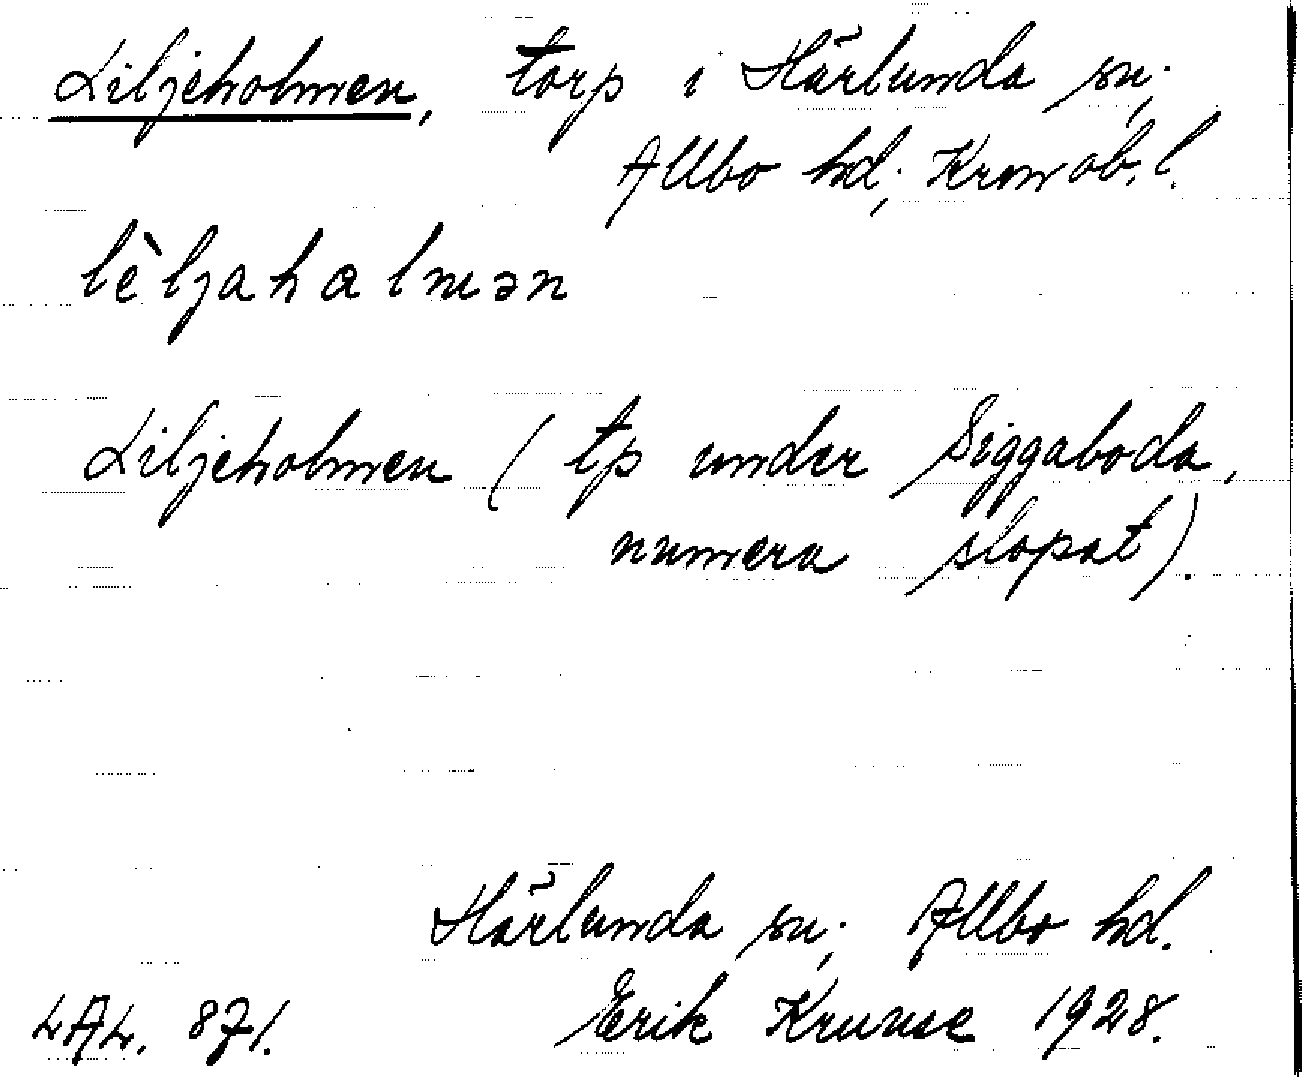 Liljeholmen, torp i Härlunda sn;
Allbo hd; Kronob. l.
lèljahalmən
Liljeholmen (tp under Siggaboda,
numera slopat).
Härlunda sn; Allbo hd.
LAL. 871. Erik Kruuse 1928.